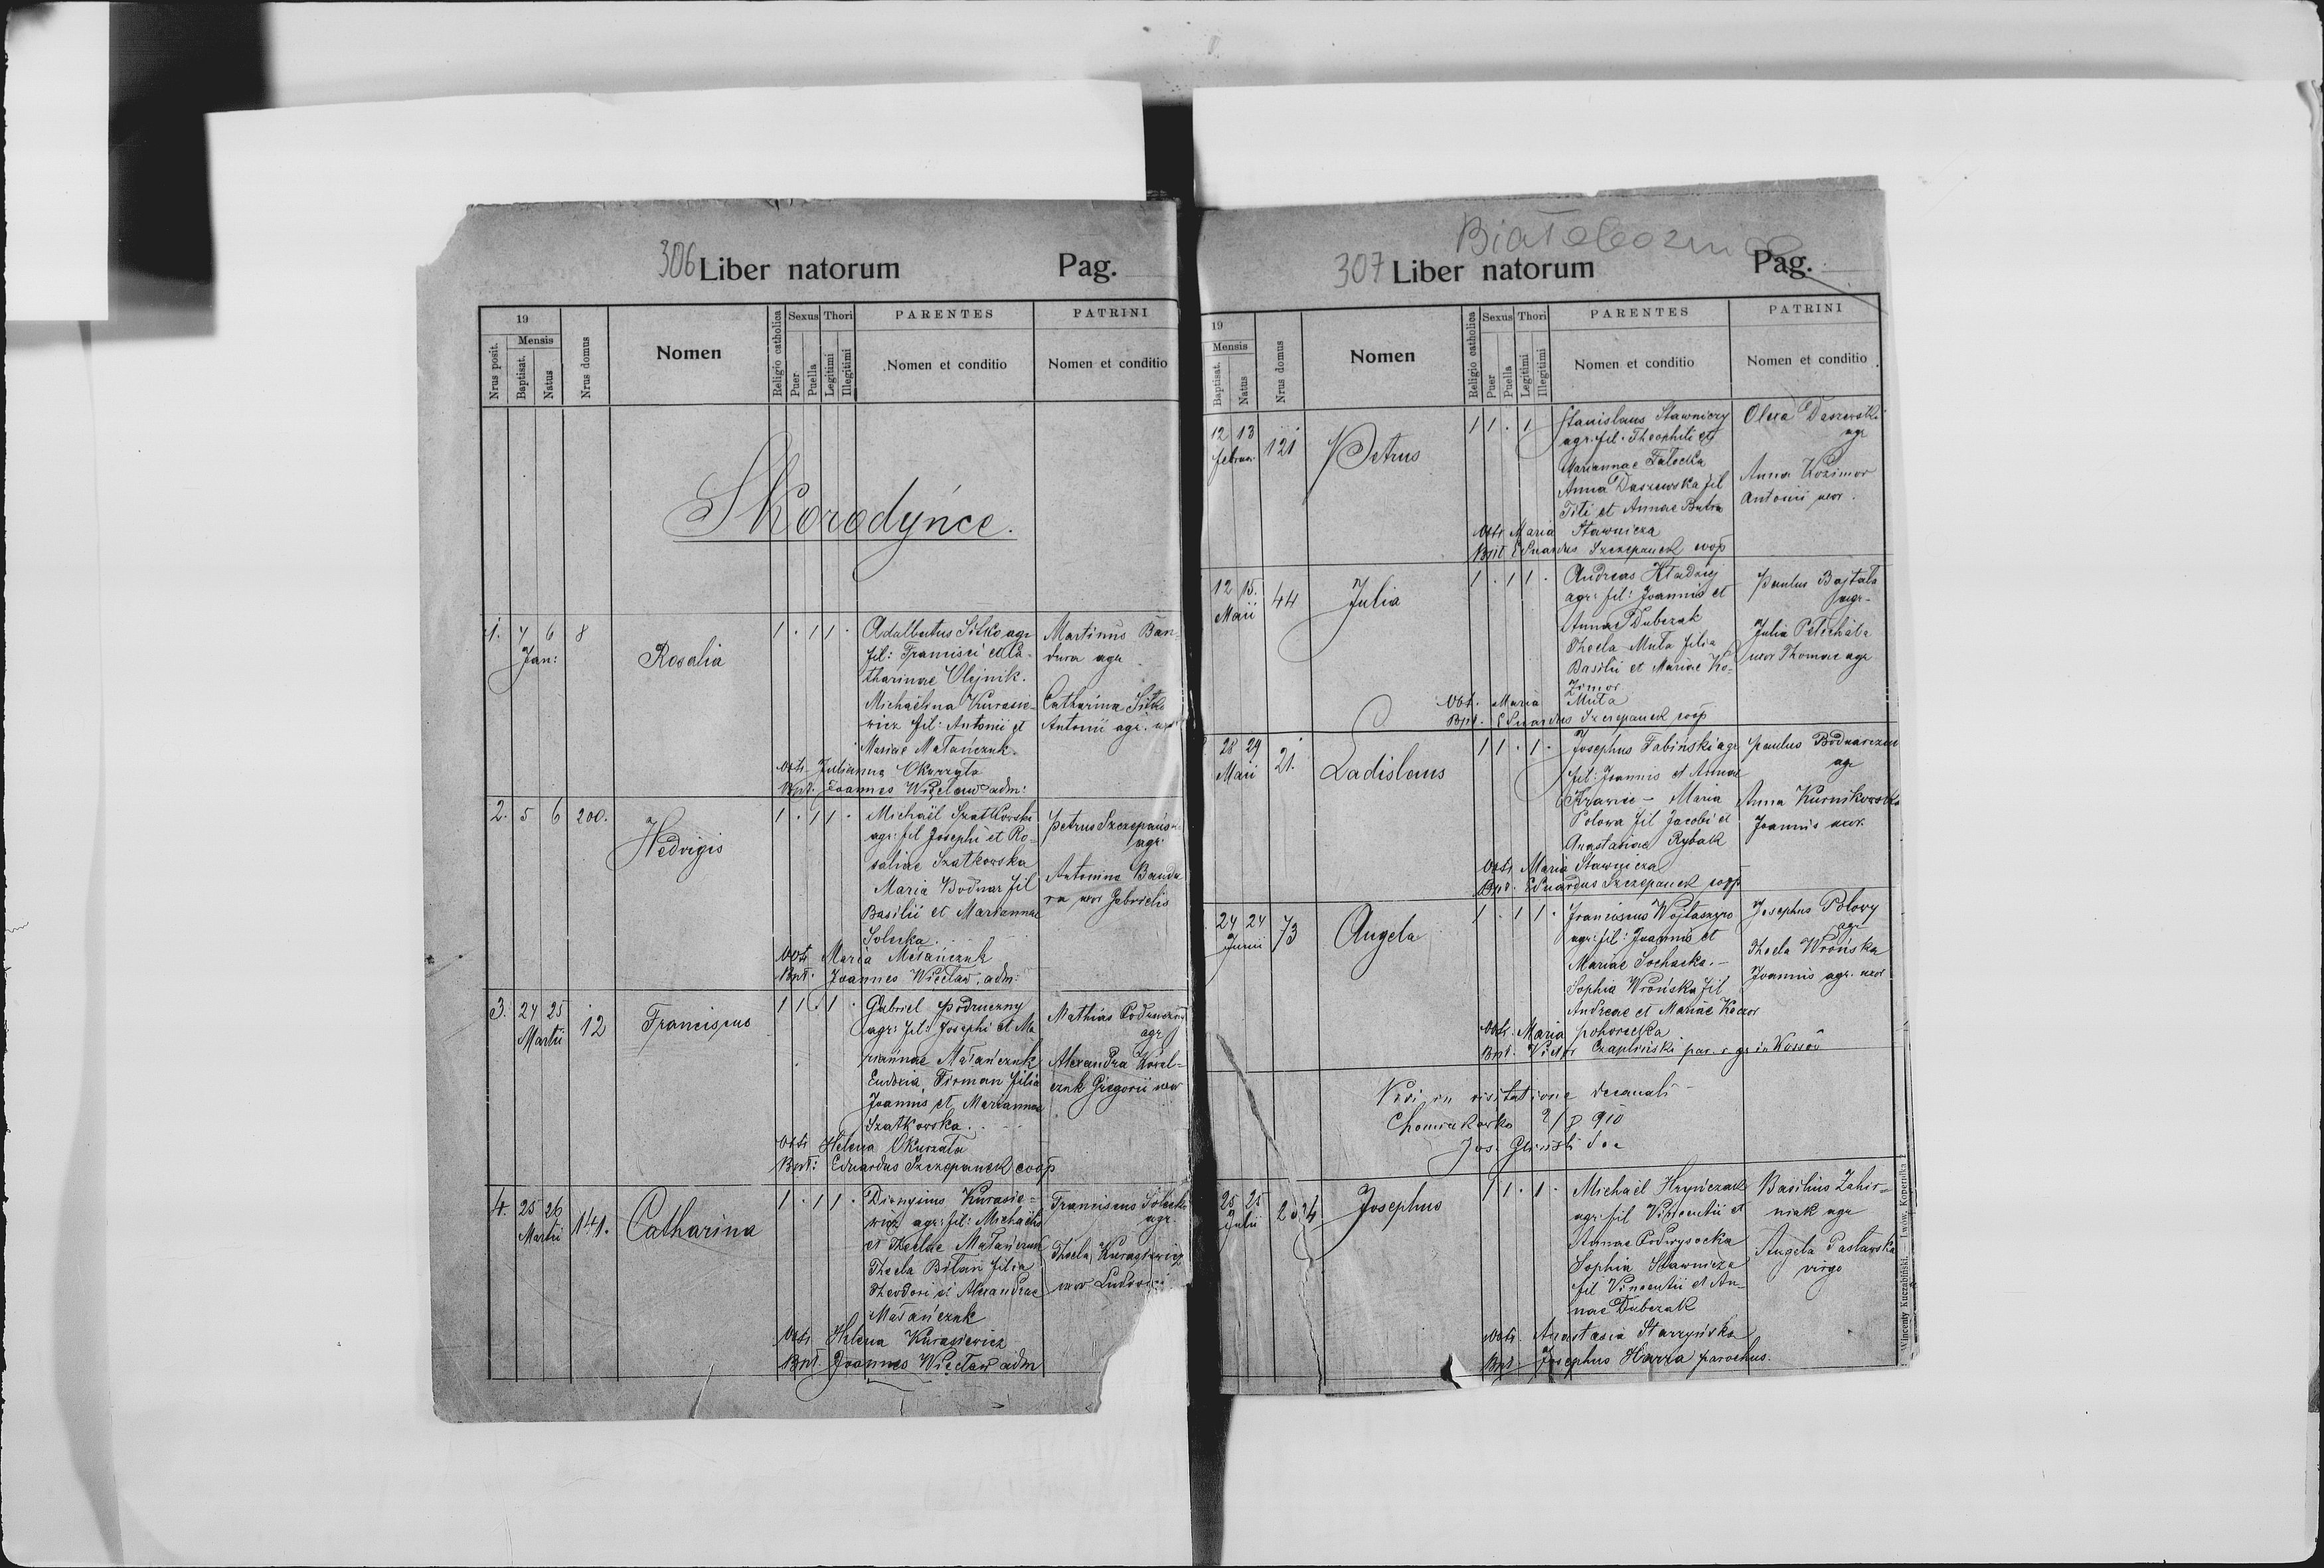 306 Liber natorum Pag.
19
Nrus posit.
Mensis
Baptisat.
Natus
Nrus domus
Nomen
Religio catholica
Sexus
Puer
Puella
Thori
Legitimi
Illegitimi
PARENTES
Nomen et conditio
PATRINI
Nomen et conditio
Skorodyńce.
1. 7 6 8
Jan:
Rosalia
1 . 1 1 .
Adalbertus Sitko agr
fil: Francisci et Ca-
tharinae Olejnik.
Michaëlina Kurasie-
wicz fil: Antonii et
Mariae Matańczuk.
Martinus Ban-
dura agr
Catharina Sitko
Antonii agr. uxor
Obst. Julianna Okurzyła
Bpt. Joannes Więcław adm:
2. 5 6 200.
Hedvigis
1 . 1 1 .
Michaël Szatkowski
agr: fil Josephi et Ro-
saliae Szatkowska
Maria Bodnar fil
Basilii et Mariannae
Solecka.
Petrus Szczepańsk
agr:
Antonina Bandu
ra uxor Gabrielis
Obst. Maria Matańczuk
Bpt. Joannes Więcław. adm:
3. 24 25 12
Martii
Franciscus
1 1 . 1 .
Gabriel Podruczny
agr: fil: Josephi et Ma
riannae Matańczuk
Eudocia Firman filia
Joannis et Mariannae
Szatkowska.
Mathias Podruczny
agr
Alexandra Koval-
czuk Gregorii uxor
Obst. Helena Okurzała
Bpt: Eduardus Szczepanek coop
4. 25 26 141.
Martii
Catharina
1 . 1 1 .
Dionysius Kurasie-
wicz agr: fil: Michaëlis
et Theclae Matańczuk
Thecla Bilan filia
Theodori et Alexandrae
Matańczuk
Franciscus Solecki
agr.
Thecla Kurasiewicz
uxor Ludovici
Obst. Helena Kurasiewicz
Bpt. Joannes Więcław adm
Białobożnica
307 Liber natorum Pag.
19
Mensis
Baptisat.
Natus
Nrus domus
Nomen
Religio catholica
Sexus
Puer
Puella
Thori
Legitimi
Illegitimi
PARENTES
Nomen et conditio
PATRINI
Nomen et conditio
12 13 121
februar.
Petrus
1 1 . 1
Stanislaus Stawniczy
agr: fil: Theophili et
Mariannae
Anna Daszewska fil
Titi et Annae
Olexa Daszewski
agr
Anna Kozimor
Antonii uxor.
Obst. Maria Stawnicza
Bpt Eduardus Szczepanek coop
12 15. 44
Maii
Julia
1 . 1 1 .
Andreas Kładziej
agr: fil: Joannis et
Anna Dubczak
Thecla Muta filia
Basilii et Mariae Ko-
zimor
Paulus Bajtała
agr-
Julia Pelechata
uxor Thomae agr
Obt. Maria Muta
Bpt. Eduardus Szczepanek coop
28 29 21.
Maii
Ladislaus
1 1 . 1 .
Josephus Fabiński agr
fil: Joannis et Annae
Krawic - Maria
Polowa fil Jacobi et
Anastasiae Rybak
Paulus Bodnarczuk
agr
Anna Kurnikowska
Joannis uxor.
Obst. Maria Stawnicza
Bpt. Eduardus Szczepanek coop
24 24 73
Junii
Angela
1 . 1 1 .
Franciscus Wojtaszyn
agr: fil: Joannis et
Mariae Sochacka. -
Sophia Wrońska fil
Andreae et Mariae
Josephus Polowy
agr
Thecla Wrońska
Joannis agr. uxor
Obst. Maria Pohorecka
Bpt. Victor Czapliński par. r. gr in Kossów
Vidi in visitatione decanali
910
Jos.
25 25 234
Julii
Josephus
1 1 . 1 .
Michaël Hryńczak
agr: fil Vincentii et
Annae Podwysocka
Sophia Stawnicza
fil Vincentii et An-
nae Dubczak
Basilius Zahir-
niak agr
Angela Paslawska
virgo
Obst. Anastasia Starzyńska
Bpt. Josephus Harza parochus.
Wincenty Kuczabiński. — Lwów, Kopernika 2